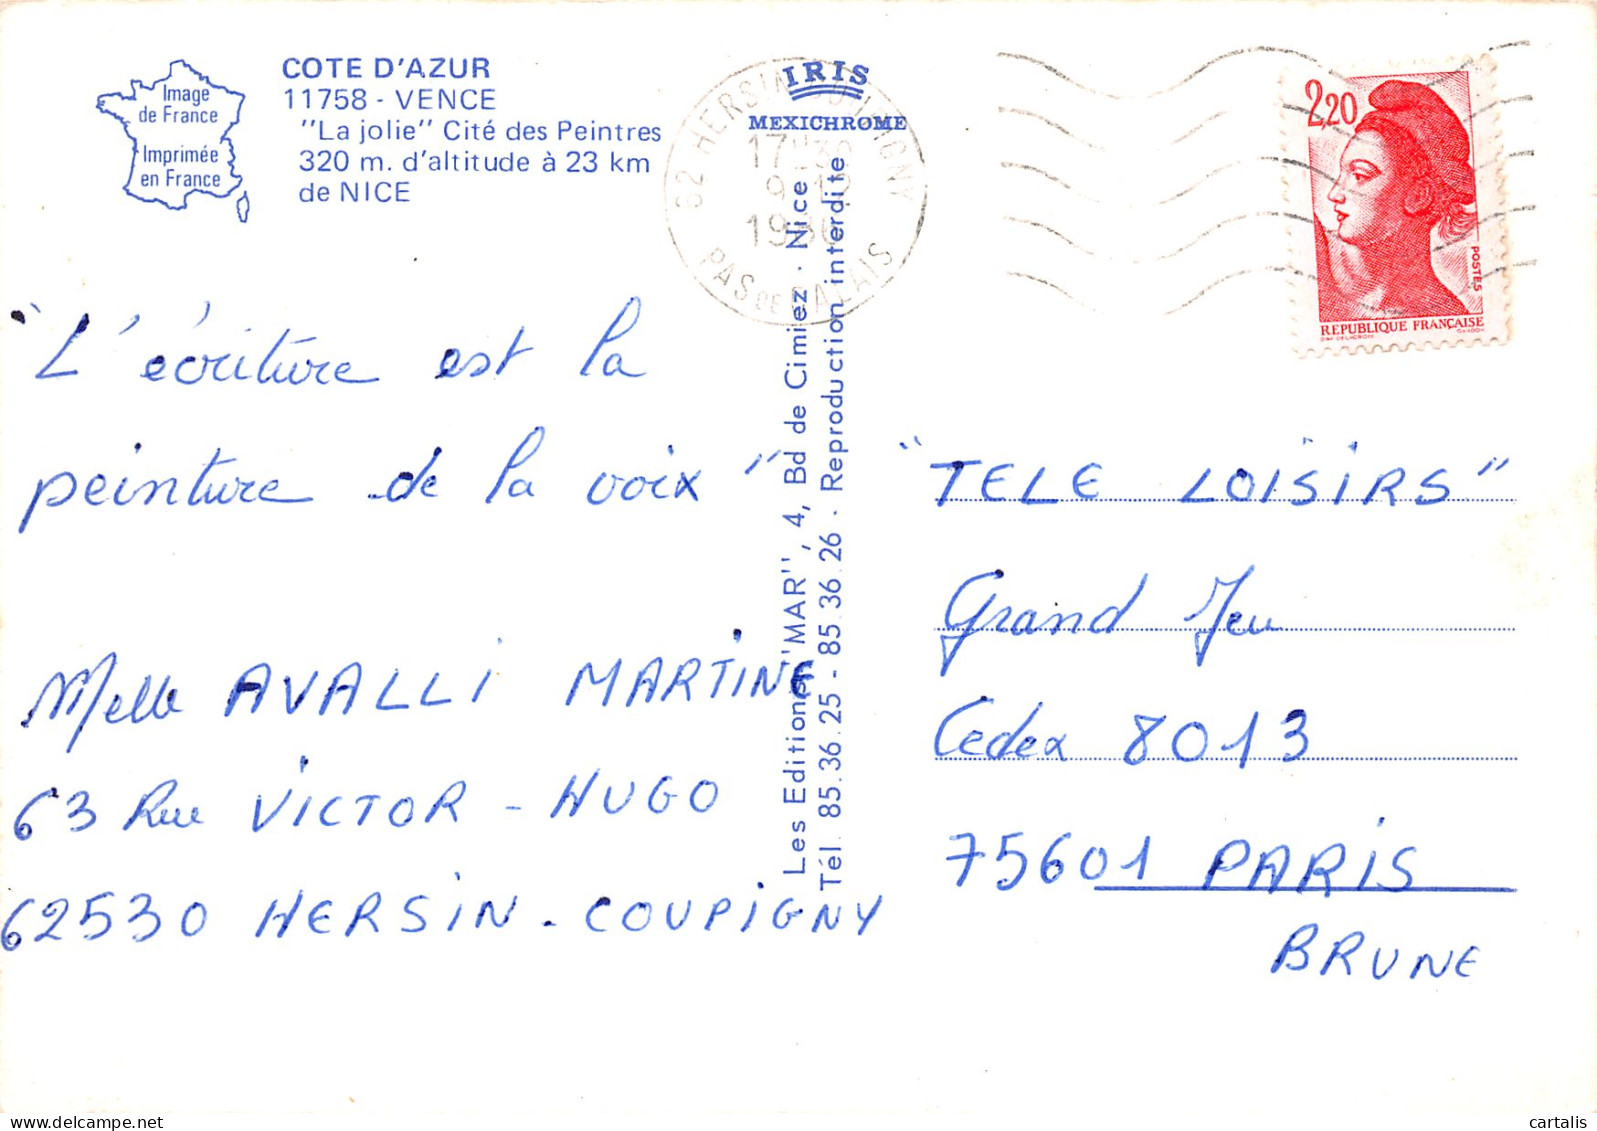 Image
de France
Imprimée
en France
COTE D'AZUR
11758 - VENCE
''La jolie'' Cité des Peintres
320 m. d'altitude à 23 km
de NICE
IRIS
MEXICHROME
62 HERSIN COUPIGNY
17H30
9-12
1986
PAS DE CALAIS
2,20
POSTES
REPUBLIQUE FRANÇAISE
"L'écriture est la
peinture de la voix"
Melle AVALLI MARTINE
63 Rue VICTOR - HUGO
62530 HERSIN - COUPIGNY
Les Editions ''MAR'', 4, Bd de Cimiez - Nice
Tél. 85.36.25 - 85.36.26 - Reproduction interdite
"TELE LOISIRS"
Grand Jeu
Cedex 8013
75601 PARIS
BRUNE
cartalis